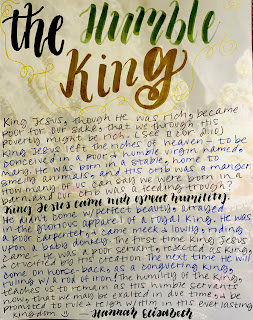 the Humble
King
King Jesus, though He was rich, became
poor for our sake, that we through His
poverty might be rich. (see 2 Cor 8v9)
King Jesus left the riches of heaven - to be
conceived in a poor & humble virgin named,
mary. He was born in a stable, home to
smelly animals, and His crib was a manger.
How many of us can say we were born in a
barn, and our crib was a feeding trough?
King Jesus came with great humility.
He didn't come w/perfect beauty, arrayed
in the glorious apparel of a royal King. He was
a poor carpenter, & came meek & lowly, riding
upon a baby donkey. The first time King Jesus
came - He was a poor servant, rejected as King,
& crucified by His creation. The next time He will
come on horse-back, as a conquering King,
ruling w/a rod of iron! The humility of the King,
teaches us to remain as His humble servants
now, that we may be exalted in due time, & be
promoted to rule & reign within His everlasting
kingdom
Hannah Elisabeth